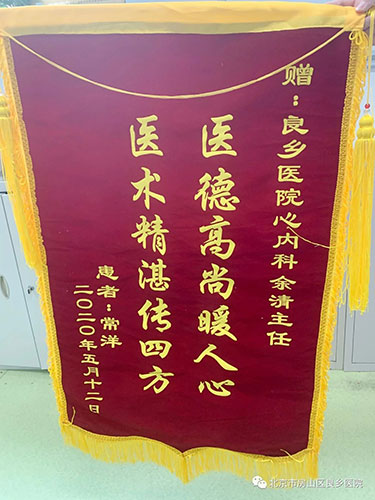 赠：良乡医院心内科余清主任
医德高尚暖人心
医术精湛传四方
患者：常洋
二〇二〇年五月十二日
北京市房山区良乡医院